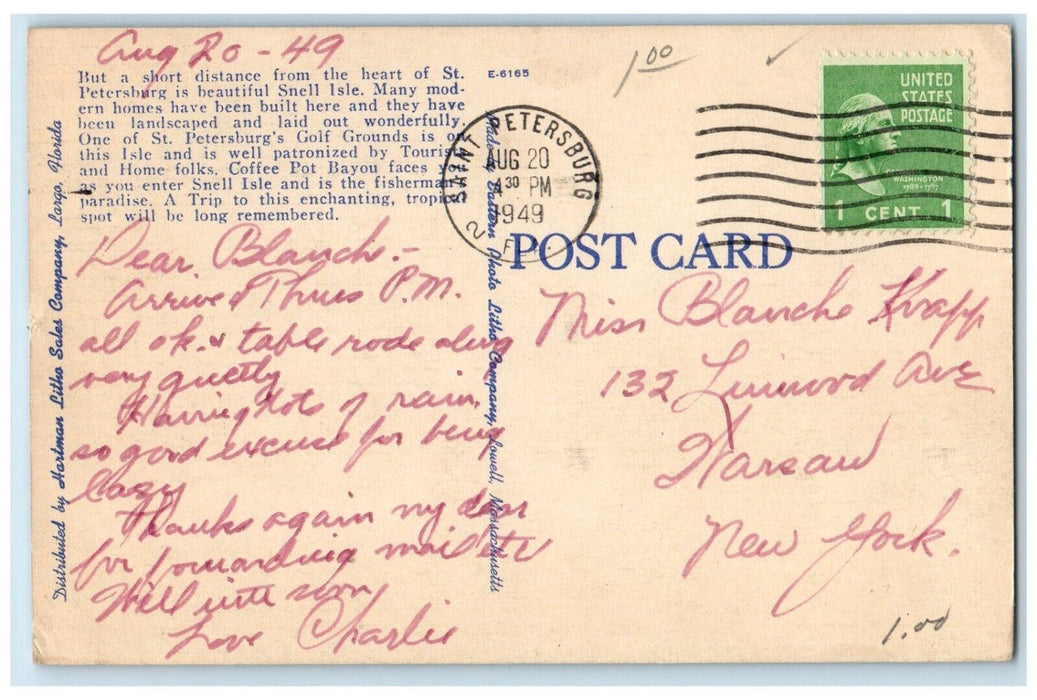 Aug 20 - 49
But a short distance from the heart of St.
Petersburg is beautiful Snell Isle. Many mod-
ern homes have been built here and they have
been landscaped and laid out wonderfully.
One of St. Petersburg's Golf Grounds is on
this Isle and is well patronized by Tourists
and Home folks. Coffee Pot Bayou faces you
as you enter Snell Isle and is the fisherman's
paradise. A Trip to this enchanting, tropical
spot will be long remembered.
E-6165
Dear Blanch.-
Arrived Thurs P.M.
all ok. & table rode along
very quietly
Having lots of rain,
so good excuse for being
lazy
Thanks again my dear
for forwarding mail etc
Will write soon
Love Charlie
Distributed by Hartman Litho Sales Company, Largo, Florida
Made by Eastern Photo Litho Company, Lowell, Massachusetts
1.00
SAINT PETERSBURG
AUG 20
4 30 PM
1949
2 FLA.
UNITED
STATES
POSTAGE
WASHINGTON
1789-1797
1 CENT 1
POST CARD
Miss Blanche Knapp
132 Linwood Ave
Warsaw
New York.
1.00